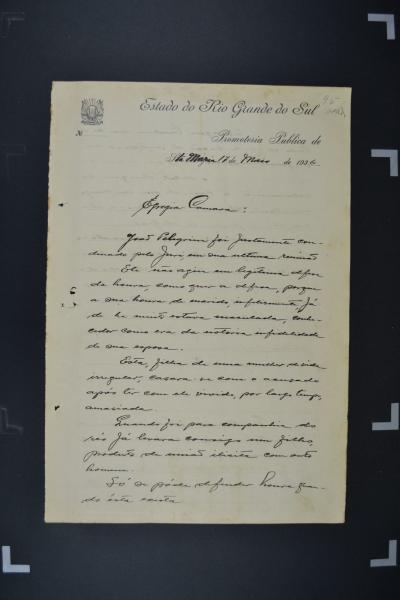 Estado do Rio Grande do Sul
Nº
Promotoria Publica de
Sta Maria 17 de Maio de 1936.
Egregia Camara:
João Pelegrini foi justamente con-
demnado pelo Jury em sua ultima reunião
Elle não agiu em legitima defesa
da honra, como quer a defesa, porque
a sua honra de marido, infelizmente, já
de ha muito estava maculada, conhe-
cedor como era da notoria infidelidade
de sua esposa.
Esta, filha de uma mulher de vida
irregular, casara-se com o accusado
após ter com elle vivido, por largo tempo,
amasiada.
Quando foi para companhia do
réo já levara comsigo um filho,
producto de união illicita com outro
homem.
Só se póde defender honra quan-
do ésta exista